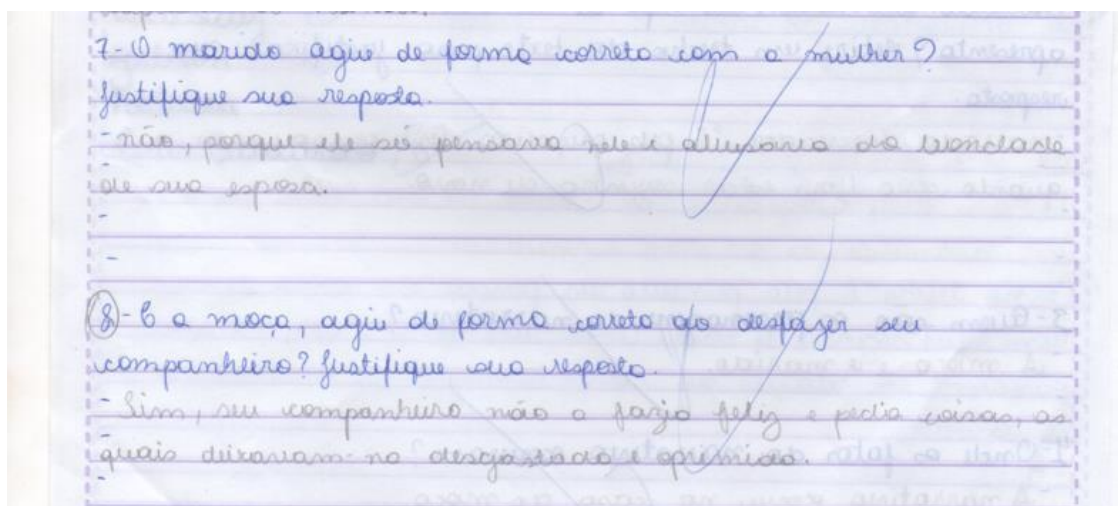 7- O marido agiu de forma correta com a mulher?
Justifique sua resposta.
- não, porque ele só pensava nele e abusava da bondade
de sua esposa.
-
-
8- E a moça, agiu de forma correta ao desfazer seu
companheiro? Justifique sua resposta.
- Sim, seu companheiro não a fazia feliz e pedia coisas, as
quais deixavam-na desgastada e oprimida.
-